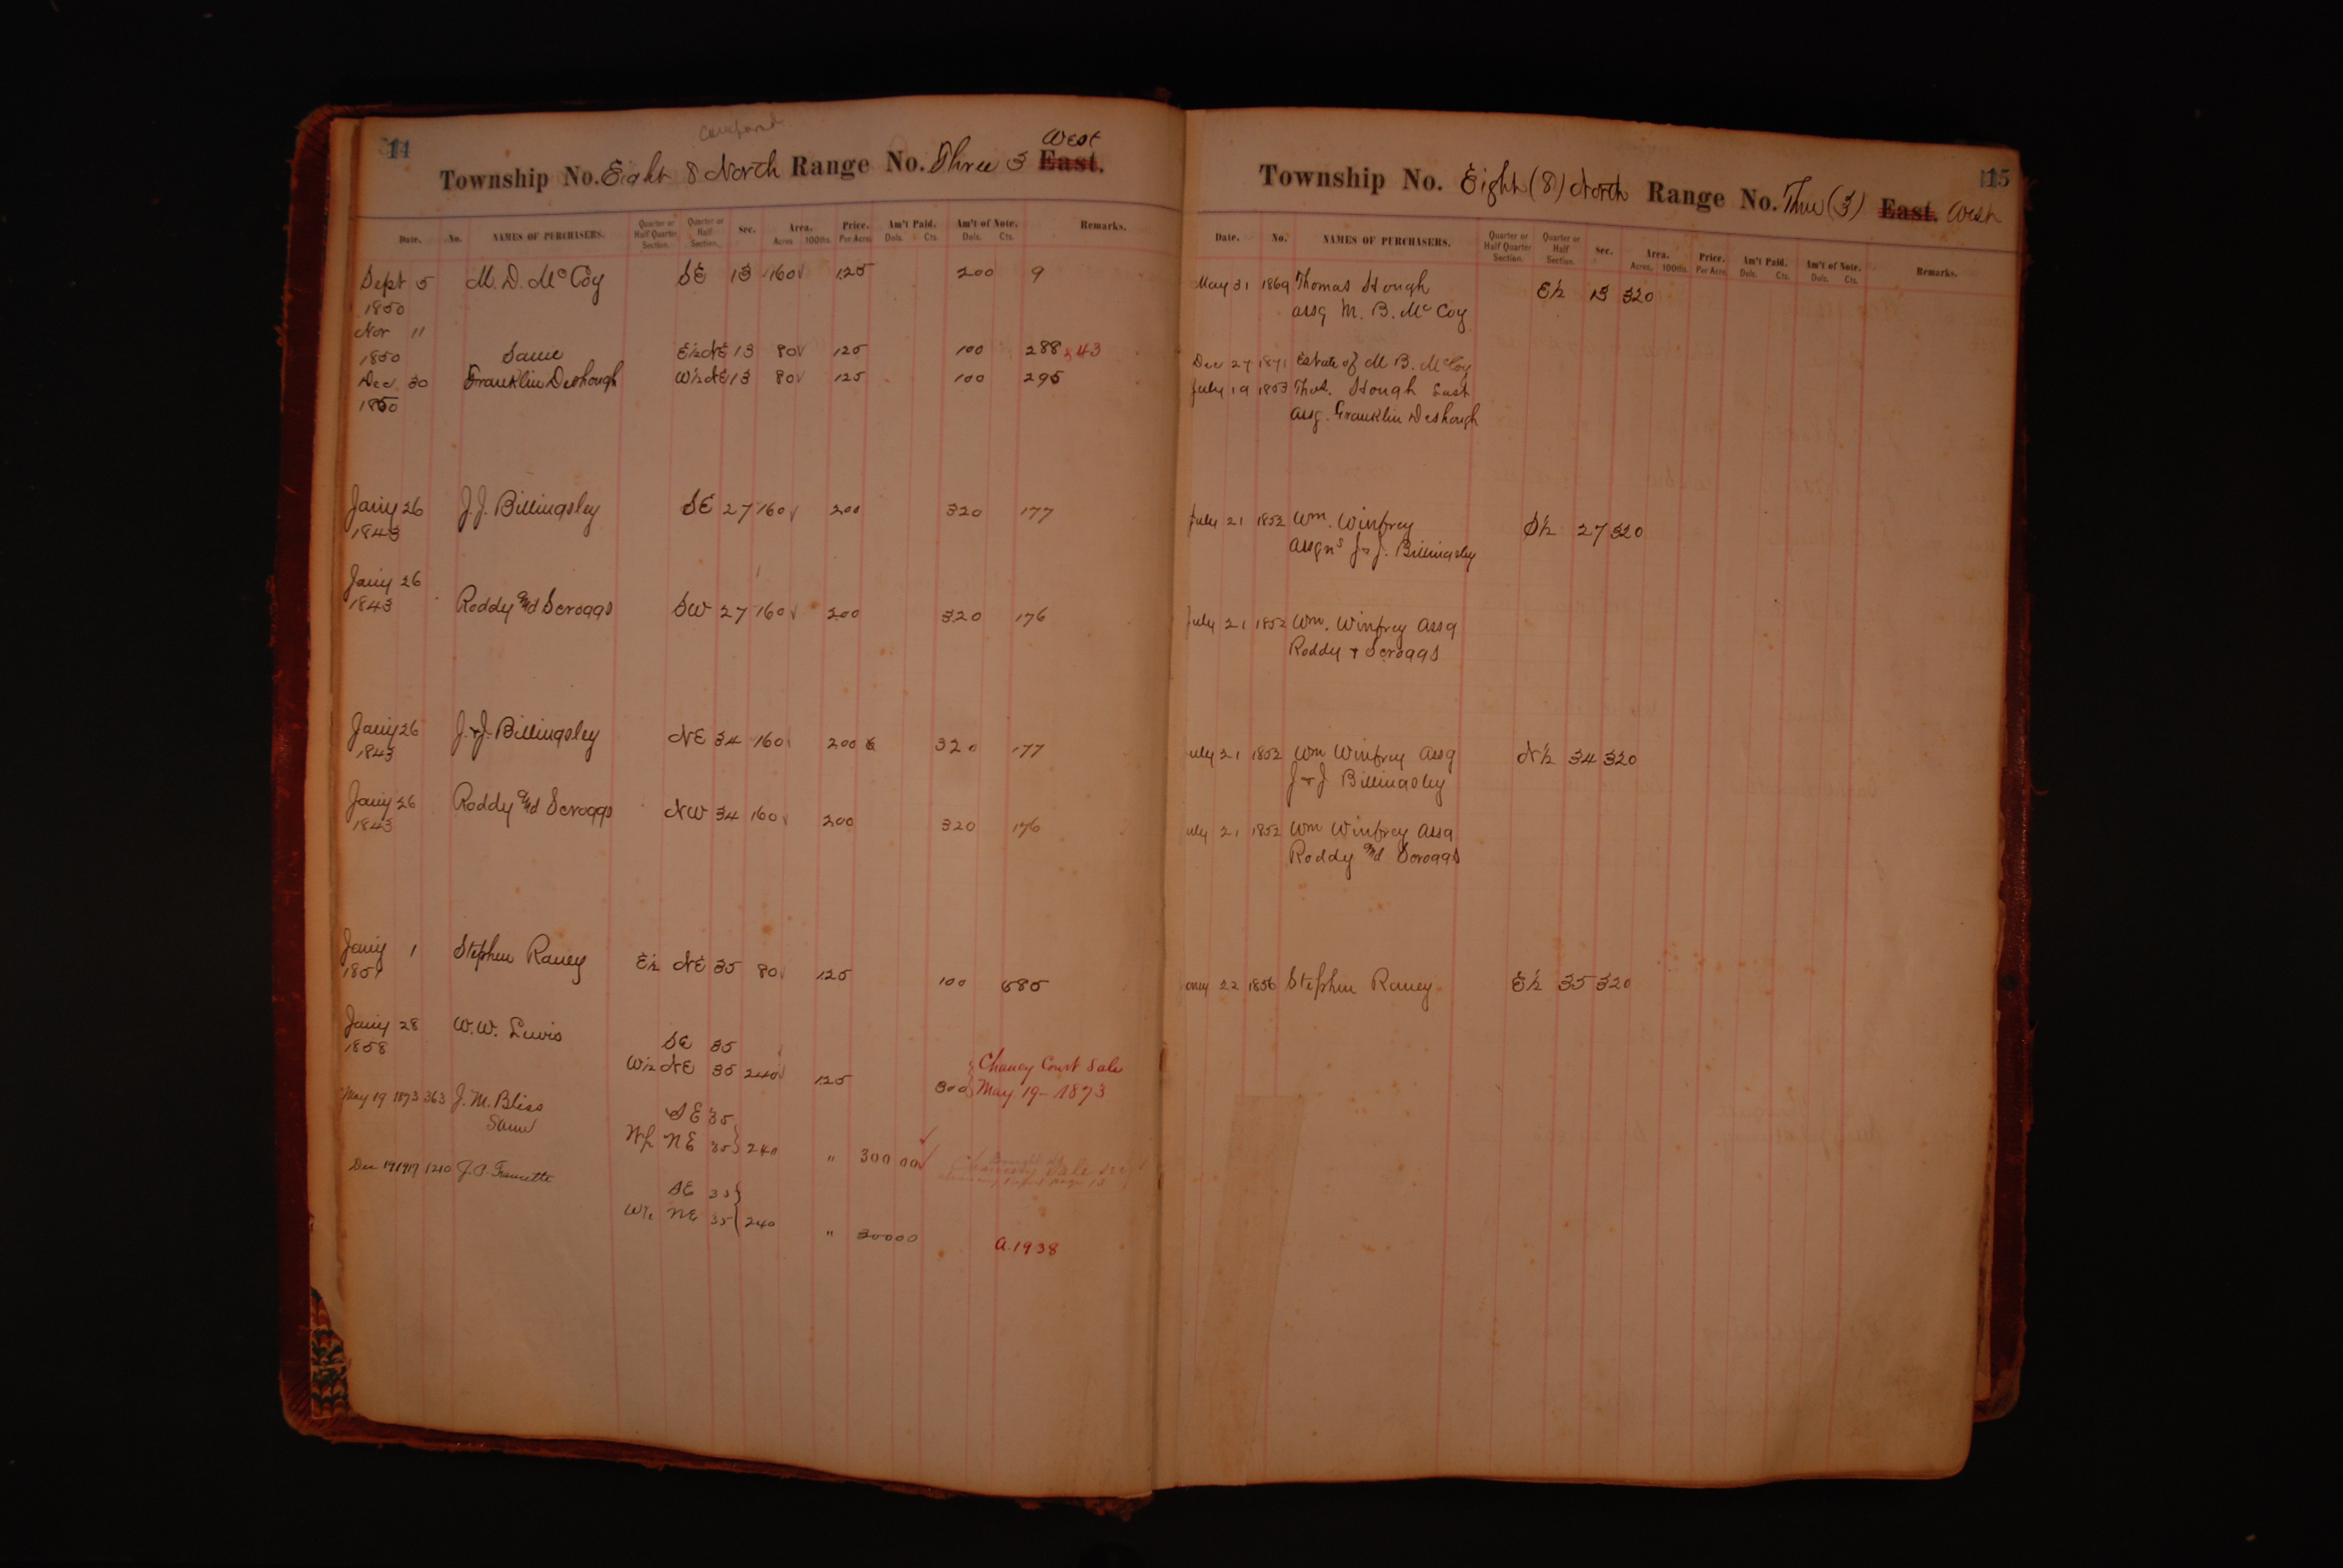 14
Compared
West
Township No. Eight 8 North Range No. Three 3 East.
Date. No. NAMES OF PURCHASERS. Quarter or Half Quarter Section. Quarter or Half Section. Sec. Area. Acres 100ths Price. Per Acre Am't Paid. Dols. Cts. Am't of Note. Dols. Cts. Remarks.
Sept 5 M. D. McCoy SE 13 160 125 200 9
1850
Nov 11
1850 Same E½ NE 13 80 125 100 288 & 43
Dec 30 Franklin Deshough W½ NE 13 80 125 100 295
1850
Jany 26 J. J. Billingsley SE 27 160 200 320 177
1843
Jany 26
1843 Roddy and Scroggs SW 27 160 200 320 176
Jany 26 J. & J. Billingsley NE 34 160 200 320 177
1843
Jany 26 Roddy and Scroggs NW 34 160 200 320 176
1843
Jany 1 Stephen Raney E½ NE 35 80 125 100 685
185
Jany 28 W. W. Lewis SE 35
1858 W½ NE 35 240 125 300
Chancy Court Sale
May 19 - 1873
May 19 1873 363 J. M. Bliss SE 35
Same W½ NE 35 240 " 300 00
Chancery Sale
Dec 19 1917 1210 J. A. SE 35
W½ NE 35 240 " 300 00
A. 1938
115
Township No. Eight (8) North Range No. Three (3) East. West
Date. No. NAMES OF PURCHASERS. Quarter or Half Quarter Section. Quarter or Half Section. Sec. Area. Acres. 100ths. Price. Per Acre Am't Paid. Dols. Cts. Am't of Note. Dols. Cts. Remarks.
May 31 1869 Thomas Hough E½ 13 320
assg M. B. McCoy
Dec 27 1871 Estate of M B. McCoy
July 19 1853 Thos. Hough Last
assg. Franklin Deshough
July 21 1852 Wm. Winfrey S½ 27 320
Assgns J & J. Billingsley
July 21 1852 Wm. Winfrey Assg
Roddy & Scroggs
uly 21 1852 Wm Winfrey Assg N½ 34 320
J & J Billingsley
uly 21 1852 Wm Winfrey Assg
Roddy and Scroggs
22 1856 Stephen Raney E½ 35 320